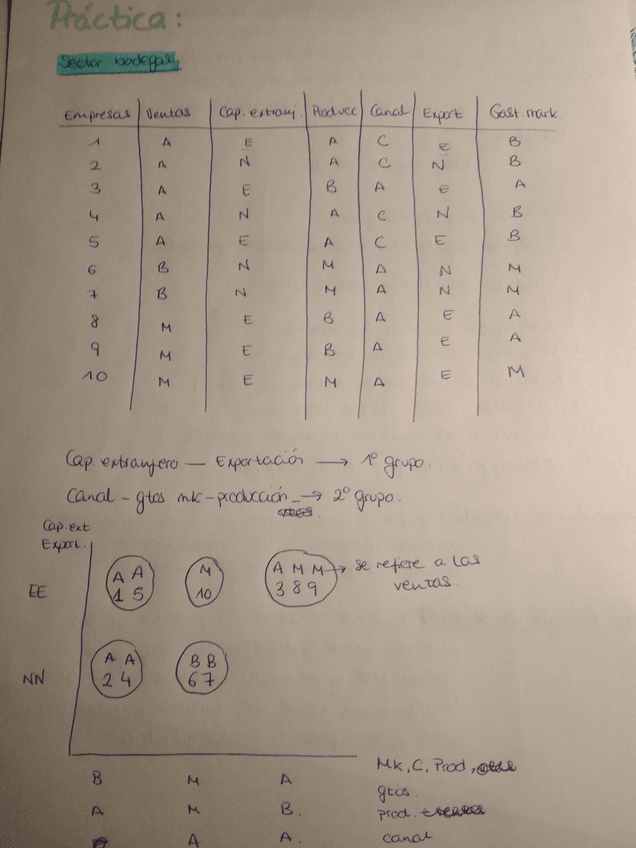 Práctica:
Sector bodegas
Empresas Ventas Cap. extranj Producc Canal Export Gast. mark.
1 A E A C E B
2 A N A C N B
3 A E B A E A
4 A N A C N B
5 A E A C E B
6 B N M A N M
7 B N M A N M
8 M E B A E A
9 M E B A E A
10 M E M A E M
Cap. extranjero — Exportación → 1º grupo.
Canal - gtos mk - producción → 2º grupo.
Cap. ext
Export.
A A M A M M → se refiere a las
EE 1 5 10 3 8 9 ventas.
A A B B
NN 2 4 6 7
B M A Mk, C, Prod,
gtos.
A M B. prod.
A A. canal